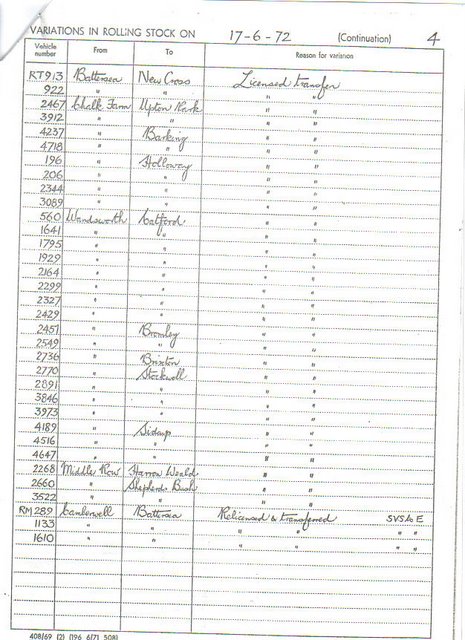 VARIATIONS IN ROLLING STOCK ON 17-6-72 (Continuation) 4
Vehicle number From To Reason for variation
RT913 Battersea New Cross Licensed transfer
922 " " " "
2467 Chalk Farm Upton Park " "
3912 " " " "
4237 " Barking " "
4718 " " " "
196 " Holloway " "
206 " " " "
2344 " " " "
3089 " " " "
560 Wandsworth Catford " "
1641 " " " "
1795 " " " "
1929 " " " "
2164 " " " "
2299 " " " "
2327 " " " "
2429 " " " "
2451 " Bromley " "
2549 " " " "
2736 " Brixton " "
2770 " Stockwell " "
2891 " " " "
3846 " " " "
3973 " " " "
4189 " Sidcup " "
4516 " " " "
4647 " " " "
2268 Middle Row Harrow Weald " "
2660 " Shepherds Bush " "
3522 " " " "
RM289 Camberwell Battersea Relicensed & transferred SVS to E
1133 " " " " " "
1610 " " " " " "
408/69 (2) (196 6/71 508)